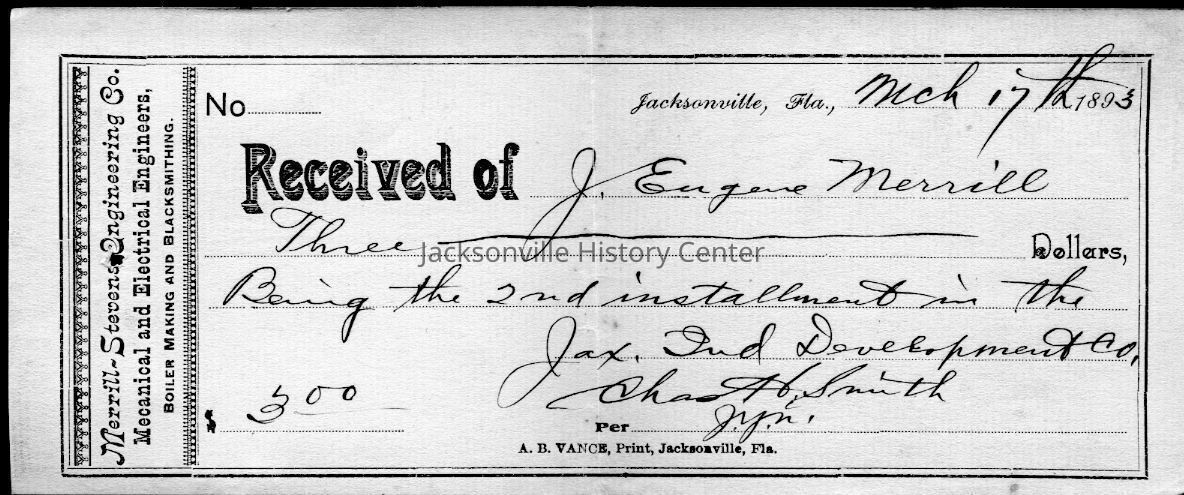 Merrill-Stevens Engineering Co.
Mecanical and Electrical Engineers,
BOILER MAKING AND BLACKSMITHING.
No
Jacksonville, Fla., Mch 17th 1893
Received of J. Eugene Merrill
Three Dollars,
Jacksonville History Center
Being the 2nd installment in the
Jax. Ind Development Co,
$ 3.00 Chas H. Smith
Per
A. B. VANCE, Print, Jacksonville, Fla.